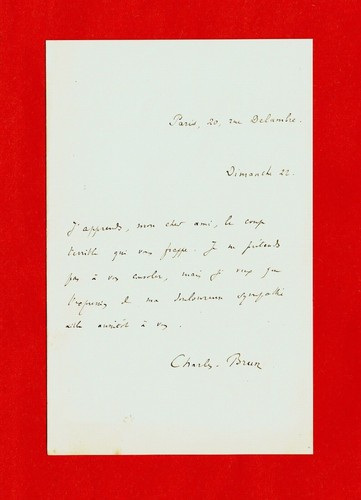 Paris, 20, rue Delambre.
Dimanche 22.
J'apprends, mon cher ami, le coup
terrible qui vous frappe. Je ne prétends
pas à vous consoler, mais je veux que
l'expression de ma douloureuse sympathie
aille aussitôt à vous.
Charles-Brun